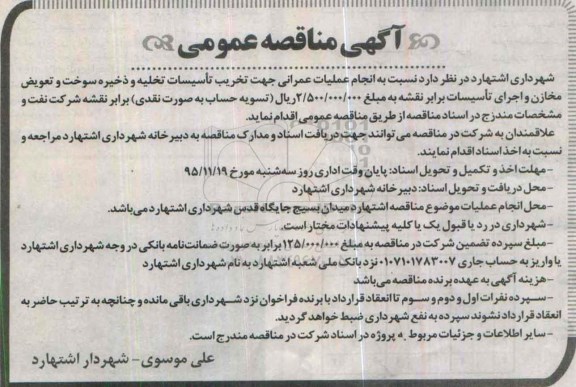 آگهی مناقصه عمومی
شهرداری اشتهارد در نظر دارد نسبت به انجام عملیات عمرانی جهت تخریب تأسیسات تخلیه و ذخیره سوخت و تعویض
مخازن و اجرای تأسیسات برابر نقشه به مبلغ ۲/۵۰۰/۰۰۰/۰۰۰ریال (تسویه حساب به صورت نقدی) برابر نقشه شرکت نفت و
مشخصات مندرج در اسناد مناقصه از طریق مناقصه عمومی اقدام نماید.
علاقمندان به شرکت در مناقصه می‌توانند جهت دریافت اسناد و مدارک مناقصه به دبیرخانه شهرداری اشتهارد مراجعه و
نسبت به اخذ اسناد اقدام نمایند.
-مهلت اخذ و تکمیل و تحویل اسناد: پایان وقت اداری روز سه‌شنبه مورخ ۹۵/۱۱/۱۹
-محل دریافت و تحویل اسناد: دبیرخانه شهرداری اشتهارد
-محل انجام عملیات موضوع مناقصه اشتهارد میدان بسیج جایگاه قدس شهرداری اشتهارد می‌باشد.
-شهرداری در رد یا قبول یک یا کلیه پیشنهادات مختار است.
-مبلغ سپرده تضمین شرکت در مناقصه به مبلغ ۱۲۵/۰۰۰/۰۰۰برابر به صورت ضمانت‌نامه بانکی در وجه شهرداری اشتهارد
یا واریز به حساب جاری ۰۱۰۷۱۰۱۷۸۳۰۰۷ نزد بانک ملی شعبه اشتهارد به نام شهرداری اشتهارد
-هزینه آگهی به عهده برنده مناقصه می‌باشد
-سپرده نفرات اول و دوم و سوم تا انعقاد قرارداد با برنده فراخوان نزد شهرداری باقی مانده و چنانچه به ترتیب حاضر به
انعقاد قرارداد نشوند سپرده به نفع شهرداری ضبط خواهد گردید.
-سایر اطلاعات و جزئیات مربوط به پروژه در اسناد شرکت در مناقصه مندرج است.
علی موسوی- شهردار اشتهارد